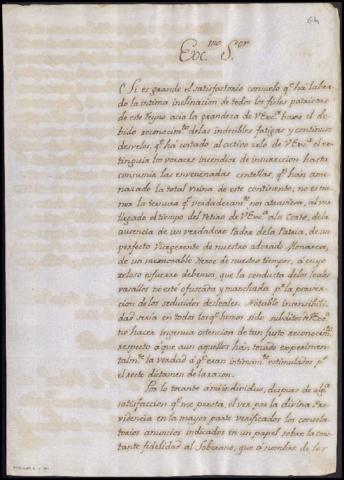 64
Exc.mo S.or
Si es grande el satisfactorio consuelo q.e há labra-
do la intima inclinacion de todos los fieles patricios
de este Reyno acia la grandeza de V.Exc.a baxo el de-
bido reconocim.to de las indecibles fatigas y continuos
desvelos, q.e há costado al activo zelo de V.Exc.a el ex-
tinguir los voraces incendios de insurreccion hasta
consumir las envenenadas centellas, q.e hán ame-
nazado la total ruina de este continente, no es me-
nor la ternura q.e verdaderam.te nos atraviesa, al ver
llegado el tiempo del retiro de V.Exc.a á la Corte, de la
ausencia de un verdadero Padre de la Patria, de un
perfecto Vicegerente de nuestro adorado Monarca,
de un memorable Heroe de nuestros tiempos, á cuyo
zeloso esfuerzo debemos, que la conducta de los leales
vasallos no esté ofuscada y manchada p.r la perver-
cion de los seducidos desleales. Notable insensibili-
dad seria en todos los q.e hemos sido subditos de V.Exc.a
no hacer ingenua ostencion de tan justo reconocim.to
respecto á que aun aquellos han tocado experimen-
talm.te la verdad á q.e eran intimam.te estimulados p.r
el recto dictamen de la razon.
Por lo tocante á mi individuo, despues de la
satisfaccion q.e me presta, el ver por la divina Pro-
videncia en la mayor parte verificados los consola-
torios anuncios indicados en un papel sobre la cons-
tante fidelidad al Soberano, que á nombre de los